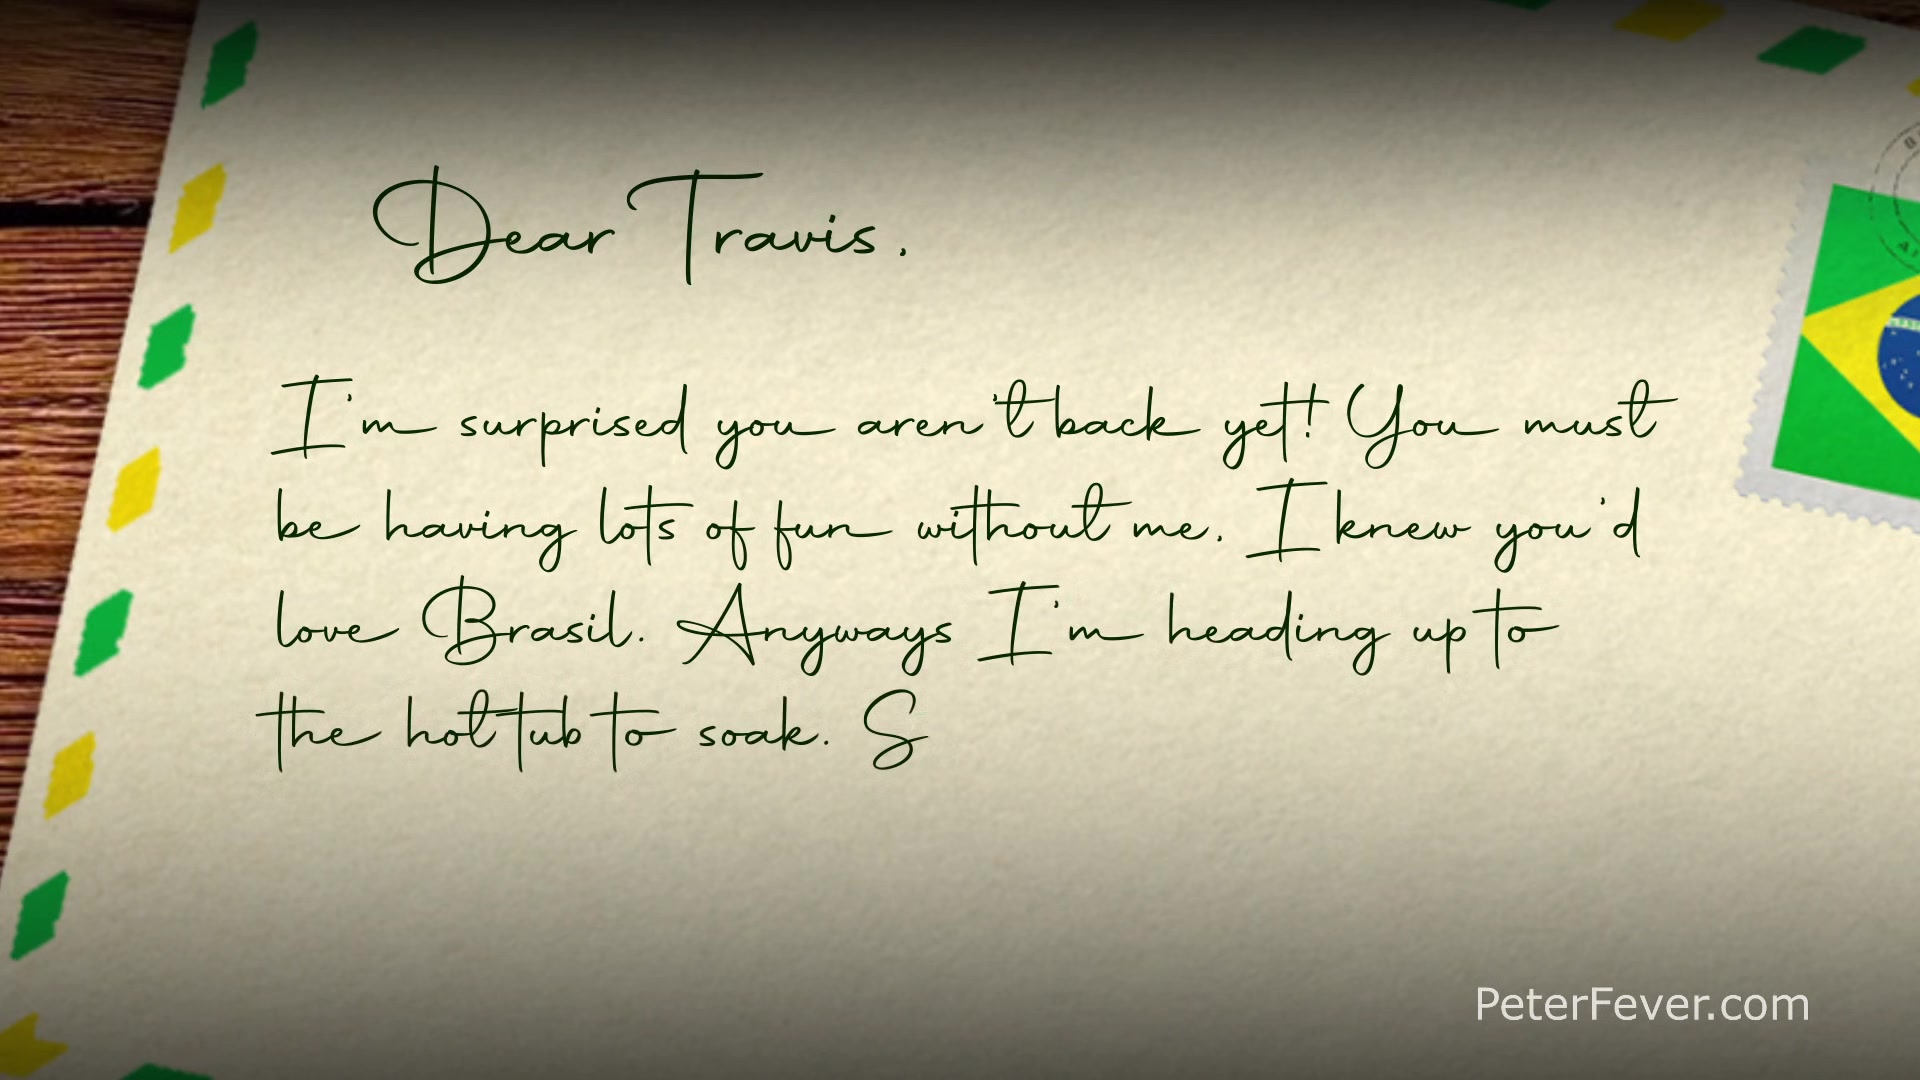 Dear Travis.
I'm surprised you aren't back yet! You must
be having lots of fun without me. I knew you'd
love Brasil. Anyways I'm heading up to
the hot tub to soak. S
PeterFever.com